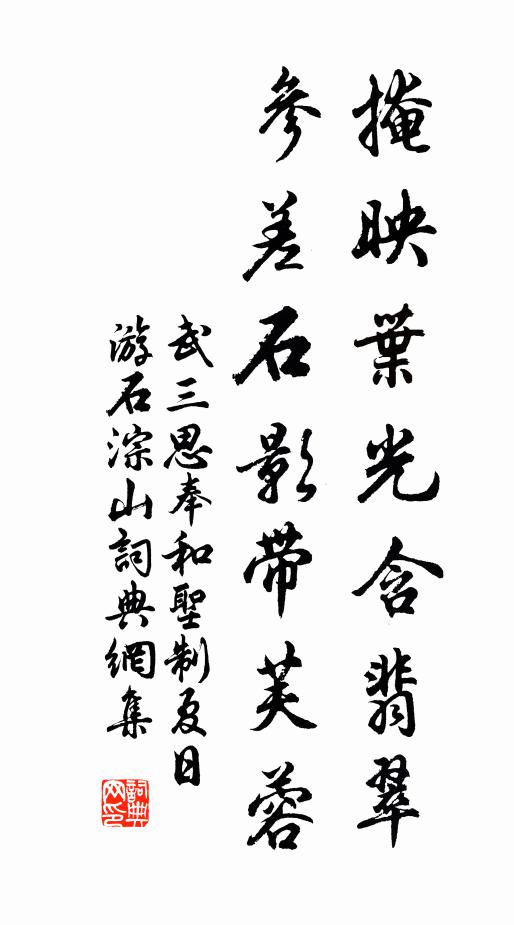 掩映葉光含翡翠
參差石影帶芙蓉
武三思奉和聖制夏日
游石淙山詞典網集
詞典
网印